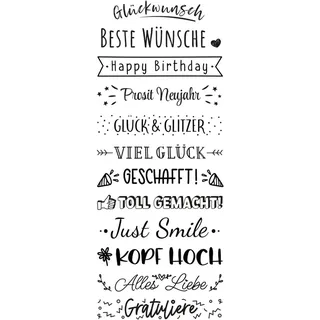 Glückwunsch
BESTE WÜNSCHE
Happy Birthday
Prosit Neujahr
GLÜCK & GLITZER
VIEL GLÜCK
GESCHAFFT!
TOLL GEMACHT!
Just Smile
KOPF HOCH
Alles Liebe
Gratuliere